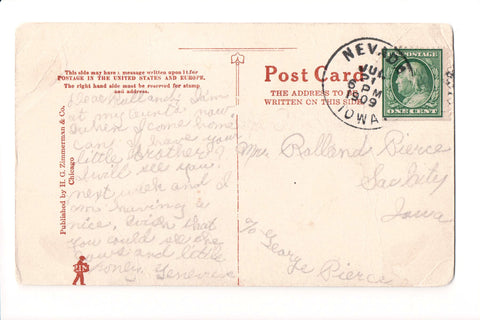 This side may have a message written upon it for
POSTAGE IN THE UNITED STATES AND EUROPE.
The right hand side must be reserved for stamp
and address.
Post Card
THE ADDRESS TO
WRITTEN ON THIS SIDE
NEVADA
JUL
6 PM
1909
IOWA
ONE CENT
Published by H. G. Zimmerman & Co.
Chicago
I am
at my aunts now
when I come home
can I have your
little brother?
I will see you
next week and I
am having a
nice,
you could see the
cows and little
ones. Genevieve
Mr. Rolland Pierce
Sac City
Iowa
c/o George
Pierce